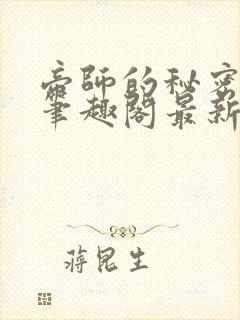 帝师的秘密
笔趣阁最新
蒋昆生